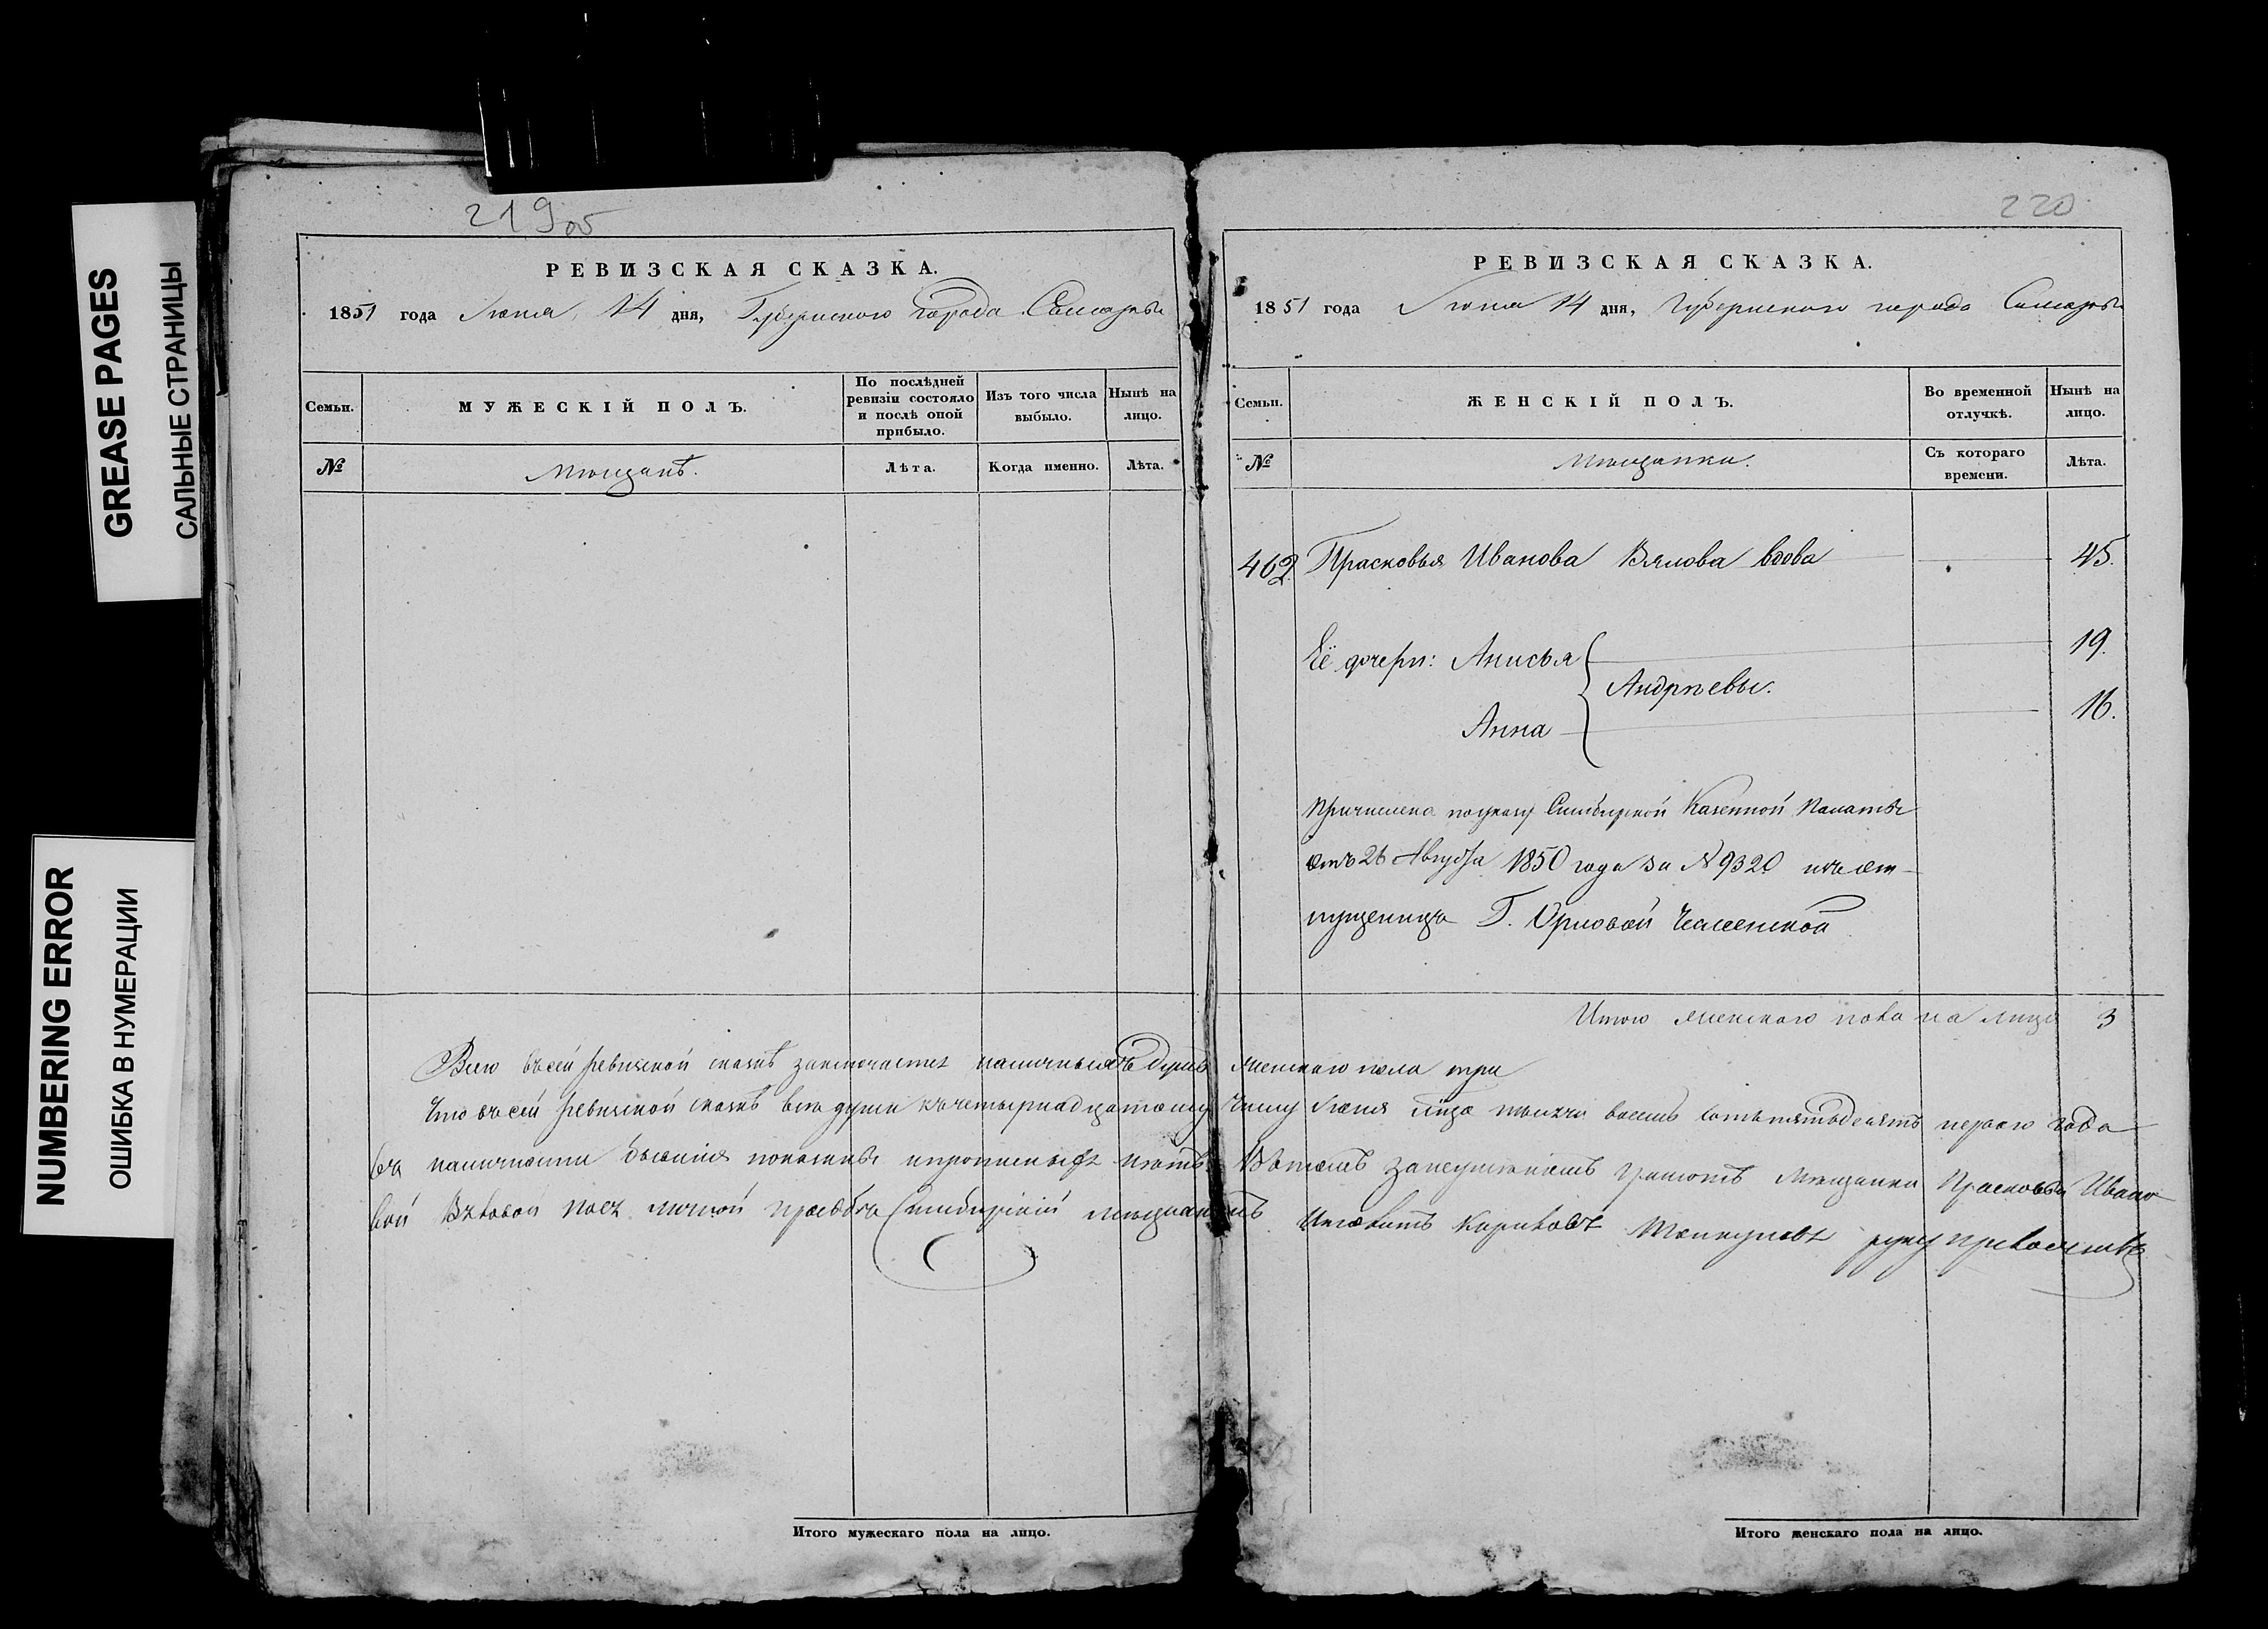 GREASE PAGES
САЛЬНЫЕ СТРАНИЦЫ
NUMBERING ERROR
ОШИБКА В НУМЕРАЦИИ
219об
РЕВИЗСКАЯ СКАЗКА.
1851 года Іюня 14 дня, Губернского города Самары
Семьи.
МУЖЕСКІЙ ПОЛЪ.
По послѣдней ревизіи состояло и послѣ оной прибыло.
Изъ того числа выбыло.
Нынѣ на лицо.
№
Мѣщанѣ.
Лѣта.
Когда именно.
Лѣта.
220
РЕВИЗСКАЯ СКАЗКА.
1851 года Іюня 14 дня, Губернского города Самары
Семьи.
ЖЕНСКІЙ ПОЛЪ.
Во временной отлучкѣ.
Нынѣ на лицо.
№
Мѣщанки.
Съ котораго времени.
Лѣта.
462 Прасковья Иванова Вялова вдова 45.
Её дочери: Анисья 19.
Андрѣевы.
Анна 16.
Причислена по указу Симбирской Казенной Палаты
отъ 26 Августа 1850 года за № 9320 изъ от-
пущеницъ Г. Орловой Чесменской
Итого женского пола на лицо 3
Всего въ сей ревизской сказкѣ заключается наличныхъ душъ женского пола три
Что въ сей ревизской сказкѣ все души къ четырнадцатому числу Іюня тысяча восемь сотъ пятьдесятъ первого года
въ наличности показаны и прописныхъ нѣтъ. Въ томъ грамотѣ Мѣщанки Прасковьи Ивано
вой личной прозьбѣ Симбирскій мѣщанинъ руку приложилъ
Итого мужескаго пола на лицо.
Итого женскаго пола на лицо.